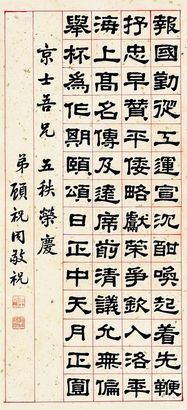 報國勤從工運宣沉酣喚起着先鞭
抒忠早贊平倭略獻策爭欽入洛年
海上高名傳及遠席前清議允無偏
舉杯為作期頤頌日正中天月正圓
京士吾兄 五秩榮慶
弟顧祝同敬祝